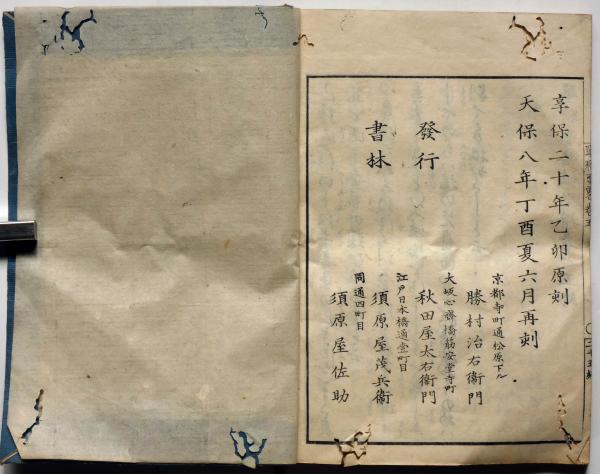 享保二十年乙卯原刻
天保八年丁酉夏六月再刻
發行
書林
京都寺町通松原下ル
勝村治右衛門
大坂心斎橋筋安堂寺町
秋田屋太右衛門
江戸日本橋通壹町目
須原屋茂兵衛
同通四町目
須原屋佐助